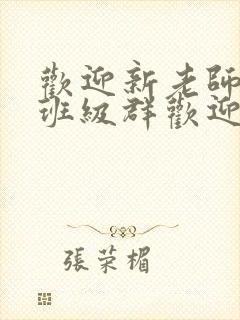 歡迎新老師
班級群歡迎
張荣楣